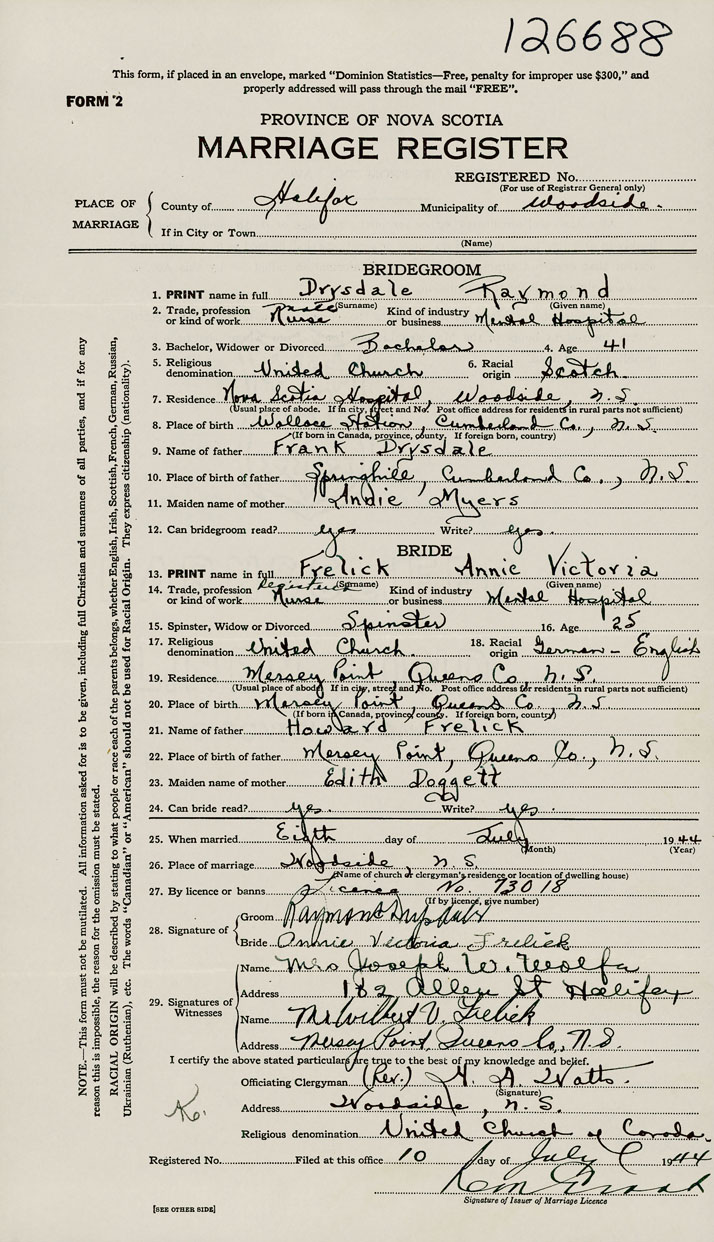 126688
This form, if placed in an envelope, marked "Dominion Statistics—Free, penalty for improper use $300," and
properly addressed will pass through the mail "FREE".
FORM 2
PROVINCE OF NOVA SCOTIA
MARRIAGE REGISTER
REGISTERED No.
(For use of Registrar General only)
PLACE OF MARRIAGE
County of Halifax Municipality of Woodside.
If in City or Town
(Name)
BRIDEGROOM
1. PRINT name in full Drysdale Raymond
(Surname) (Given name)
2. Trade, profession or kind of work Male Nurse Kind of industry or business Mental Hospital
3. Bachelor, Widower or Divorced Bachelor 4. Age 41
5. Religious denomination United Church 6. Racial origin Scotch.
7. Residence Nova Scotia Hospital, Woodside, N.S.
(Usual place of abode. If in city, street and No. Post office address for residents in rural parts not sufficient)
8. Place of birth Wallace Station, Cumberland Co., N.S.
(If born in Canada, province, county. If foreign born, country)
9. Name of father Frank Drysdale
10. Place of birth of father Springhill, Cumberland Co., N.S.
11. Maiden name of mother Andie Myers
12. Can bridegroom read? yes Write? yes.
BRIDE
13. PRINT name in full Frelick Annie Victoria
(Surname) (Given name)
14. Trade, profession or kind of work Registered Nurse Kind of industry or business Mental Hospital
15. Spinster, Widow or Divorced Spinster 16. Age 25
17. Religious denomination United Church. 18. Racial origin German - English
19. Residence Mersey Point, Queens Co., N.S.
(Usual place of abode. If in city, street and No. Post office address for residents in rural parts not sufficient)
20. Place of birth Mersey Point, Queens Co., N.S
(If born in Canada, province, county. If foreign born, country)
21. Name of father Howard Frelick
22. Place of birth of father Mersey Point, Queens Co., N.S.
23. Maiden name of mother Edith Doggett
24. Can bride read? yes. Write? yes.
25. When married Eigth day of July 1944
(Month) (Year)
26. Place of marriage Woodside, N.S.
(Name of church or clergyman's residence or location of dwelling house)
27. By licence or banns Licence No. 73018
(If by licence, give number)
28. Signature of
Groom Raymond Drysdale
Bride Annie Victoria Frelick
29. Signatures of Witnesses
Name Mrs Joseph W. Wolfe
Address 182 Allen St Halifax
Name Mr Wilbert V. Frelick
Address Mersey Point Queens Co, N.S.
I certify the above stated particulars are true to the best of my knowledge and belief.
Officiating Clergyman (Rev.) H. A. Watts.
(Signature)
Address Woodside, N.S.
Religious denomination United Church of Canada.
Registered No. Filed at this office 10 day of July 1944
Signature of Issuer of Marriage Licence
[SEE OTHER SIDE]
NOTE.—This form must not be mutilated. All information asked for is to be given, including full Christian and surnames of all parties, and if for any
reason this is impossible, the reason for the omission must be stated.
RACIAL ORIGIN will be described by stating to what people or race each of the parents belongs, whether English, Irish, Scottish, French, German, Russian,
Ukrainian (Ruthenian), etc. The words "Canadian" or "American" should not be used for Racial Origin. They express citizenship (nationality).